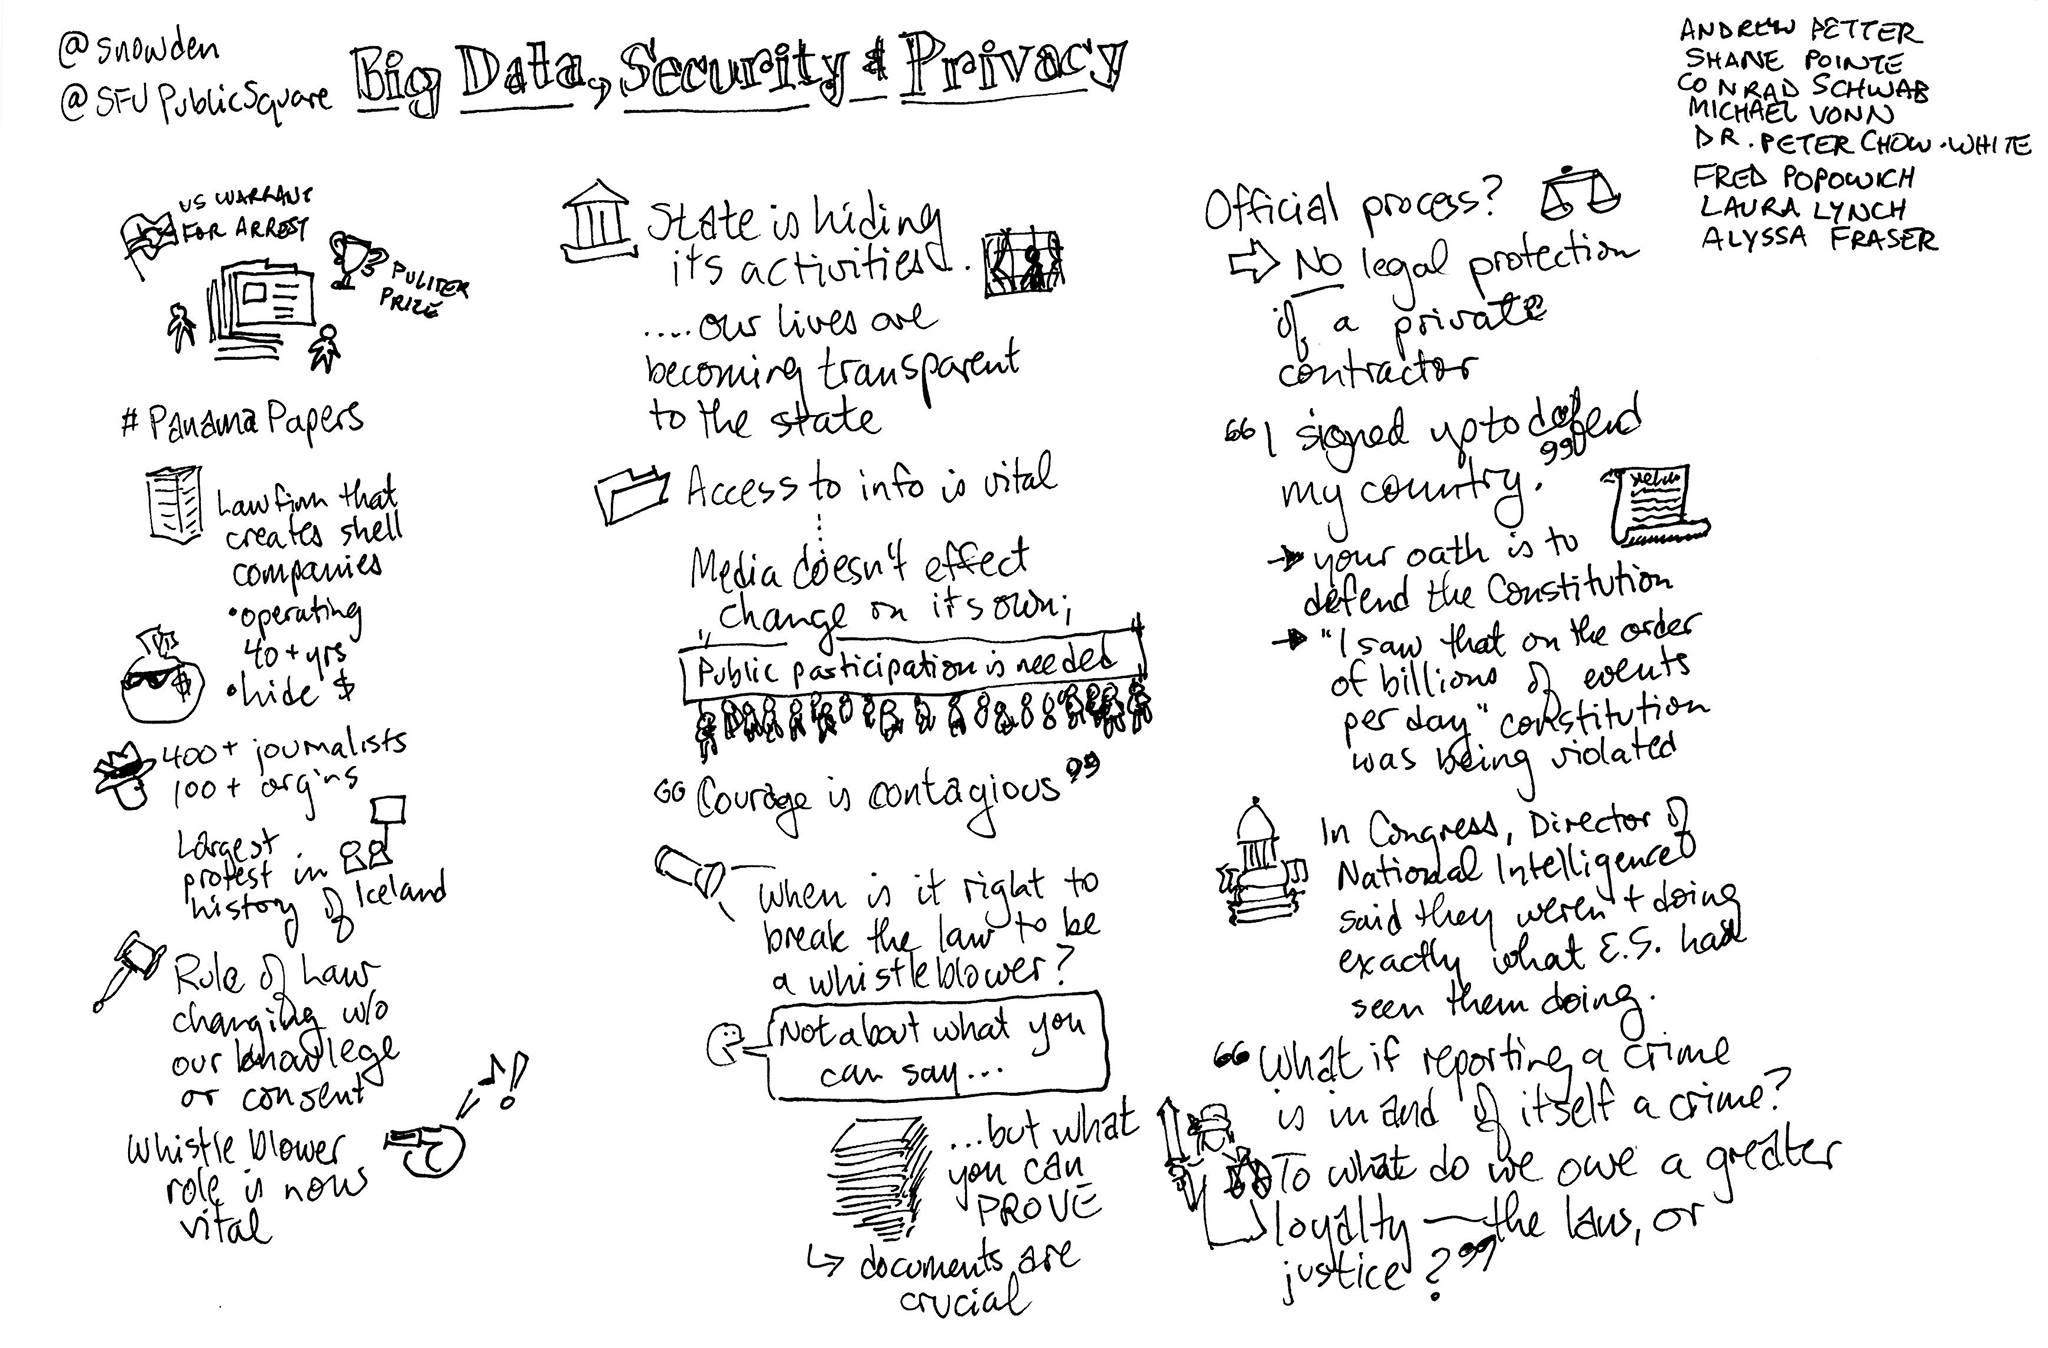 @snowden
@SFUPublicSquare
Big Data, Security & Privacy
ANDREW PETTER
SHANE POINTE
CONRAD SCHWAB
MICHAEL VONN
DR. PETER CHOW-WHITE
FRED POPOWICH
LAURA LYNCH
ALYSSA FRASER
US WARRANT
FOR ARREST
PULITZER
PRIZE
#PanamaPapers
Law firm that
creates shell
companies
•operating
40+yrs
•hide $
$
400+ journalists
100+ orgins
Largest
protest in
history of Iceland
Rule of Law
changing w/o
our knowlege
or consent
Whistle blower
role is now
vital
State is hiding
its activities.
.....our lives are
becoming transparent
to the state
Access to info is vital
Media doesn't effect
change on its own;
Public participation is needed
"Courage is contagious"
When is it right to
break the law to be
a whistleblower?
Not about what you
can say...
...but what
you can
PROVE
↳ documents are
crucial
Official process?
⇨ NO legal protection
if a private
contractor
"I signed up to defend
my country."
→ your oath is to
defend the Constitution
→ "I saw that on the order
of billions of events
per day" constitution
was being violated
In Congress, Director of
National Intelligence
said they weren't doing
exactly what E.S. had
seen them doing.
"What if reporting a crime
is in and of itself a crime?
To what do we owe a greater
loyalty — the law, or
justice?"